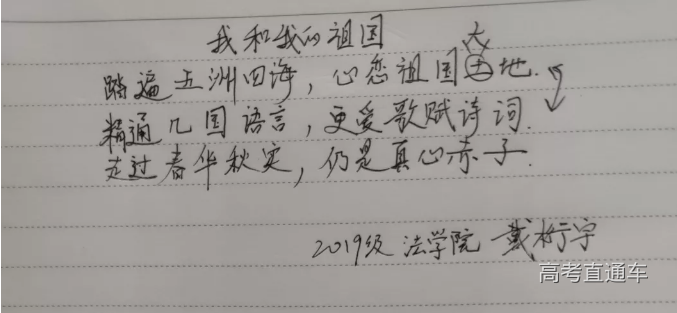 我和我的祖国
踏遍五洲四海，心恋祖国大地.
精通几国语言，更爱歌赋诗词.
走过春华秋实，仍是真心赤子.
2019级 法学院 戴树宇
高考直通车